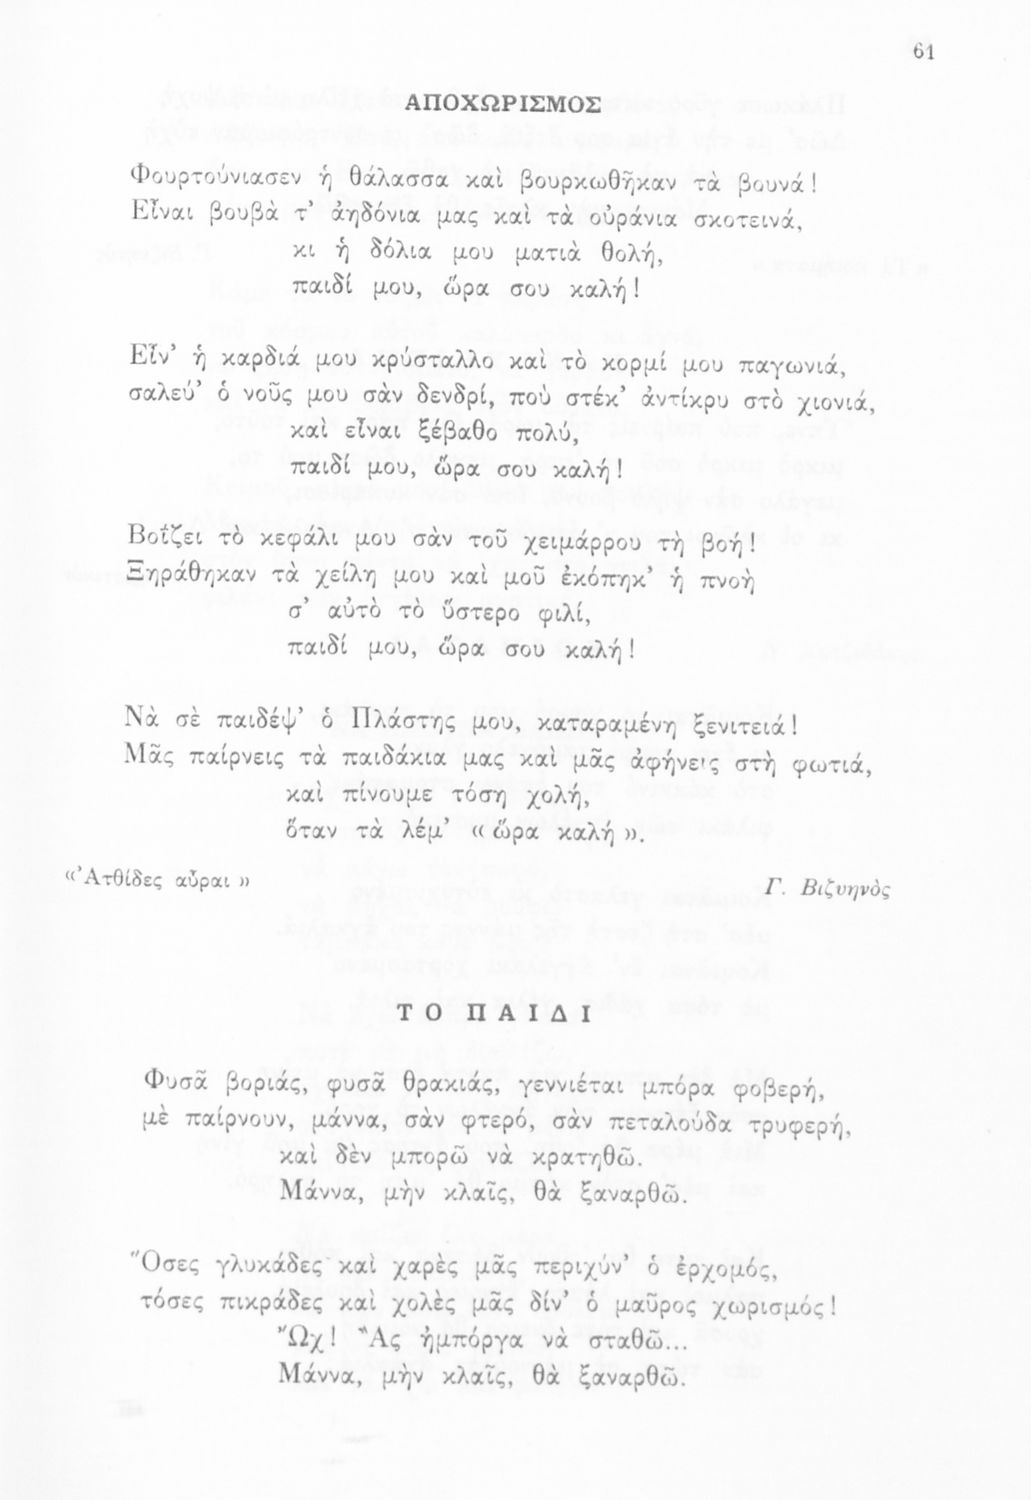 61
ΑΠΟΧΩΡΙΣΜΟΣ
Φουρτούνιασεν ἡ θάλασσα καὶ βουρκωθῆκαν τὰ βουνά!
Εἶναι βουβὰ τ’ ἀηδόνια μας καὶ τὰ οὐράνια σκοτεινά,
κι ἡ δόλια μου ματιὰ θολή,
παιδί μου, ὥρα σου καλή!
Εἶν’ ἡ καρδιά μου κρύσταλλο καὶ τὸ κορμί μου παγωνιά,
σαλεύ’ ὁ νοῦς μου σὰν δενδρί, ποὺ στέκ’ ἀντίκρυ στὸ χιονιά,
καὶ εἶναι ξέβαθο πολύ,
παιδί μου, ὥρα σου καλή!
Βοΐζει τὸ κεφάλι μου σὰν τοῦ χειμάρρου τὴ βοή!
Ξηράθηκαν τὰ χείλη μου καὶ μοῦ ἐκόπηκ’ ἡ πνοὴ
σ’ αὐτὸ τὸ ὕστερο φιλί,
παιδί μου, ὥρα σου καλή!
Νὰ σὲ παιδέψ’ ὁ Πλάστης μου, καταραμένη ξενιτειά!
Μᾶς παίρνεις τὰ παιδάκια μας καὶ μᾶς ἀφήνεις στὴ φωτιά,
καὶ πίνουμε τόση χολή,
ὅταν τὰ λέμ’ «ὥρα καλή».
«Ἀτθίδες αὖραι»
Γ. Βιζυηνὸς
ΤΟ ΠΑΙΔΙ
Φυσᾶ βοριάς, φυσᾶ θρακιάς, γεννιέται μπόρα φοβερή,
μὲ παίρνουν, μάννα, σὰν φτερό, σὰν πεταλούδα τρυφερή,
καὶ δὲν μπορῶ νὰ κρατηθῶ.
Μάννα, μὴν κλαῖς, θὰ ξαναρθῶ.
Ὅσες γλυκάδες καὶ χαρὲς μᾶς περιχύν’ ὁ ἐρχομός,
τόσες πικράδες καὶ χολὲς μᾶς δίν’ ὁ μαῦρος χωρισμός!
Ὤχ! Ἂς ἠμπόργα νὰ σταθῶ...
Μάννα, μὴν κλαῖς, θὰ ξαναρθῶ.